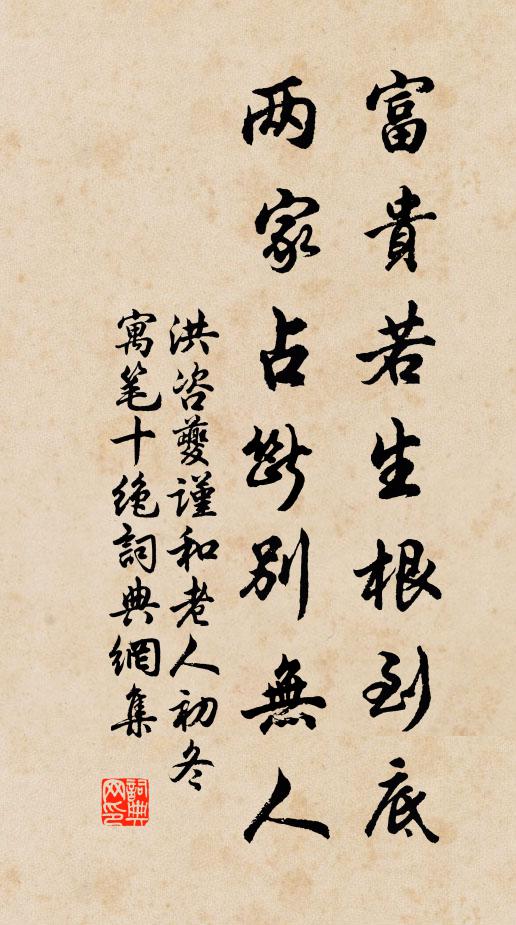 富貴若生根到底
两家占斷別無人
洪咨夔謹和老人初冬
寓笔十绝詞典網集
詞典网印